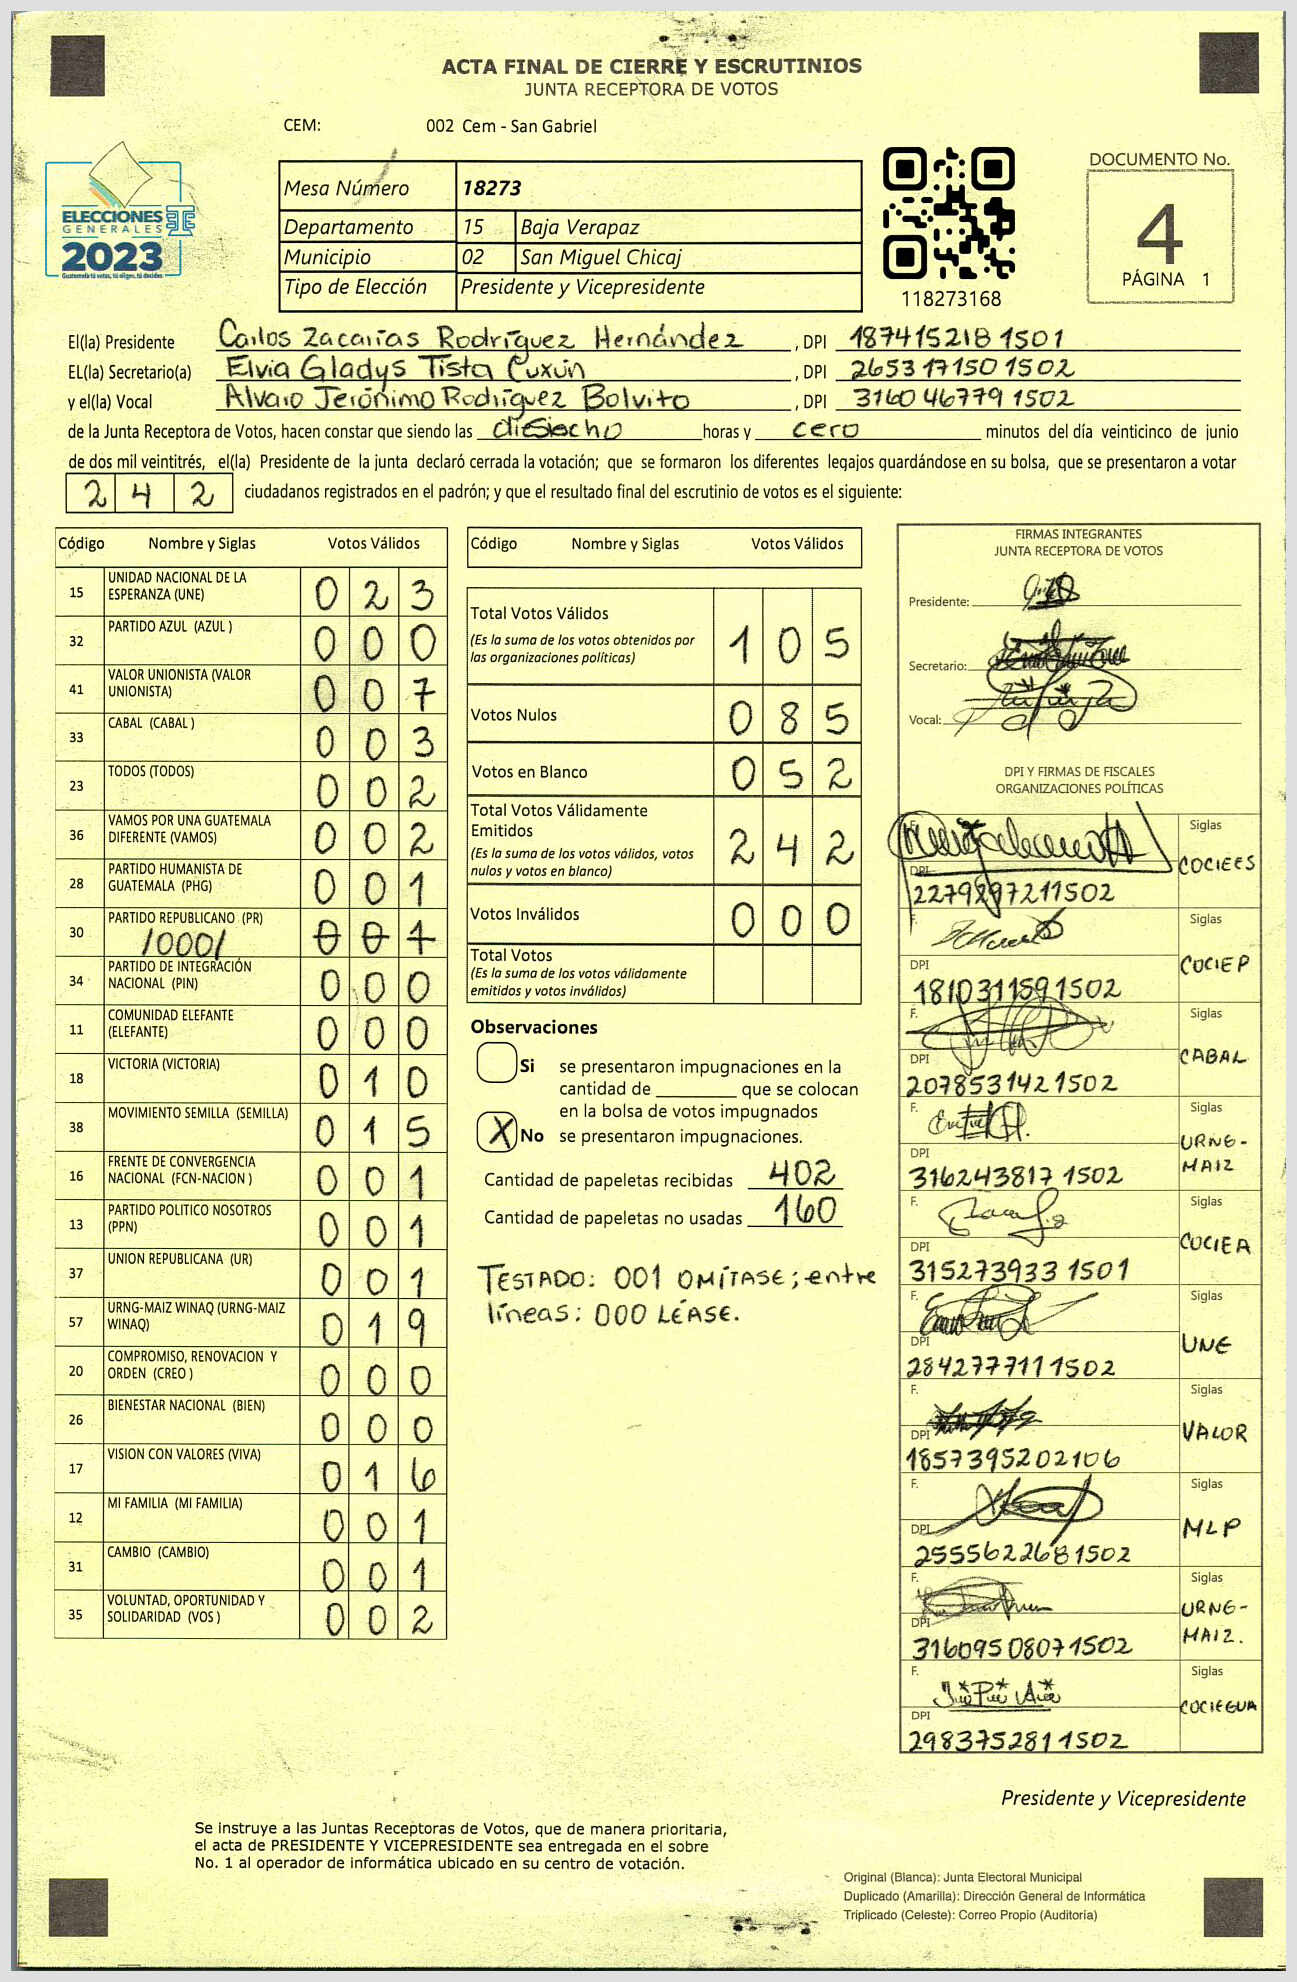 ACTA FINAL DE CIERRE Y ESCRUTINIOS
JUNTA RECEPTORA DE VOTOS
CEM: 002 Cem - San Gabriel
ELECCIONES
GENERALES
2023
Guatemala tú votas, tú eliges, tú decides
Mesa Número 18273
Departamento 15 Baja Verapaz
Municipio 02 San Miguel Chicaj
Tipo de Elección Presidente y Vicepresidente
118273168
DOCUMENTO No.
4
PÁGINA 1
El(la) Presidente Carlos Zacarías Rodríguez Hernández, DPI 187415218 1501
EL(la) Secretario(a) Elvia Gladys Tista Cuxún, DPI 265317150 1502
y el(la) Vocal Alvaro Jerónimo Rodríguez Bolvito, DPI 316046779 1502
de la Junta Receptora de Votos, hacen constar que siendo las diesiocho horas y cero minutos del día veinticinco de junio
de dos mil veintitrés, el(la) Presidente de la junta declaró cerrada la votación; que se formaron los diferentes legajos guardándose en su bolsa, que se presentaron a votar
242 ciudadanos registrados en el padrón; y que el resultado final del escrutinio de votos es el siguiente:
Código Nombre y Siglas Votos Válidos
15 UNIDAD NACIONAL DE LA ESPERANZA (UNE) 0 2 3
32 PARTIDO AZUL (AZUL ) 0 0 0
41 VALOR UNIONISTA (VALOR UNIONISTA) 0 0 7
33 CABAL (CABAL ) 0 0 3
23 TODOS (TODOS) 0 0 2
36 VAMOS POR UNA GUATEMALA DIFERENTE (VAMOS) 0 0 2
28 PARTIDO HUMANISTA DE GUATEMALA (PHG) 0 0 1
30 PARTIDO REPUBLICANO (PR) /000/ 0 0 1
34 PARTIDO DE INTEGRACIÓN NACIONAL (PIN) 0 0 0
11 COMUNIDAD ELEFANTE (ELEFANTE) 0 0 0
18 VICTORIA (VICTORIA) 0 1 0
38 MOVIMIENTO SEMILLA (SEMILLA) 0 1 5
16 FRENTE DE CONVERGENCIA NACIONAL (FCN-NACION ) 0 0 1
13 PARTIDO POLITICO NOSOTROS (PPN) 0 0 1
37 UNION REPUBLICANA (UR) 0 0 1
57 URNG-MAIZ WINAQ (URNG-MAIZ WINAQ) 0 1 9
20 COMPROMISO, RENOVACION Y ORDEN (CREO ) 0 0 0
26 BIENESTAR NACIONAL (BIEN) 0 0 0
17 VISION CON VALORES (VIVA) 0 1 6
12 MI FAMILIA (MI FAMILIA) 0 0 1
31 CAMBIO (CAMBIO) 0 0 1
35 VOLUNTAD, OPORTUNIDAD Y SOLIDARIDAD (VOS ) 0 0 2
Código Nombre y Siglas Votos Válidos
Total Votos Válidos 1 0 5
(Es la suma de los votos obtenidos por
las organizaciones políticas)
Votos Nulos 0 8 5
Votos en Blanco 0 5 2
Total Votos Válidamente
Emitidos 2 4 2
(Es la suma de los votos válidos, votos
nulos y votos en blanco)
Votos Inválidos 0 0 0
Total Votos
(Es la suma de los votos válidamente
emitidos y votos inválidos)
Observaciones
Si se presentaron impugnaciones en la
cantidad de ________ que se colocan
en la bolsa de votos impugnados
X No se presentaron impugnaciones.
Cantidad de papeletas recibidas 402
Cantidad de papeletas no usadas 160
TESTADO: 001 OMÍTASE; entre
líneas: 000 LÉASE.
FIRMAS INTEGRANTES
JUNTA RECEPTORA DE VOTOS
Presidente:
Secretario:
Vocal:
DPI Y FIRMAS DE FISCALES
ORGANIZACIONES POLÍTICAS
F. Siglas
COCIEES
DPI
2279297211502
F. Siglas
COCIEP
DPI
1810311591502
F. Siglas
CABAL
DPI
2078531421502
F. Siglas
URNG-
MAIZ
DPI
316243817 1502
F. Siglas
COCIEA
DPI
315273933 1501
F. Siglas
UNE
DPI
2842777111502
F. Siglas
VALOR
DPI
1857395202106
F. Siglas
MLP
DPI
2555622681502
F. Siglas
URNG-
MAIZ.
DPI
3160950807 1502
F. Siglas
COCIEGUA
DPI
2983752811502
Presidente y Vicepresidente
Se instruye a las Juntas Receptoras de Votos, que de manera prioritaria,
el acta de PRESIDENTE Y VICEPRESIDENTE sea entregada en el sobre
No. 1 al operador de informática ubicado en su centro de votación.
Original (Blanca): Junta Electoral Municipal
Duplicado (Amarilla): Dirección General de Informática
Triplicado (Celeste): Correo Propio (Auditoría)